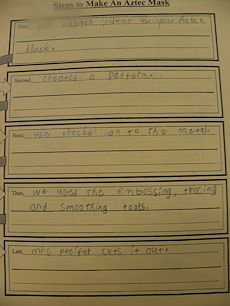 Steps to Make An Aztec Mask
First, you collect ideas for your Aztec
Mask.
Second, created a Pattern.
Next, we traced on to the metal.
Then, we used the embossing, tracing
and smoothing tools.
Last, mrs cuts it out.